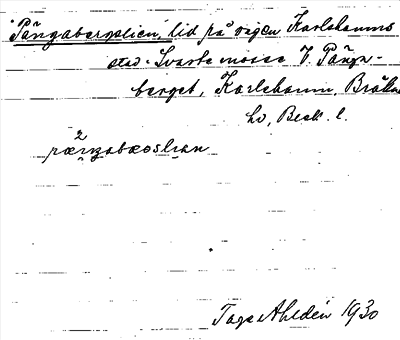 Pängabergslien, lid på vägen Karlshamns
stad - Svarta mosse V. Pänga-
berget, Karlshamn, Bräkne
hd, Blek. l.
Tage Ahldén 1930